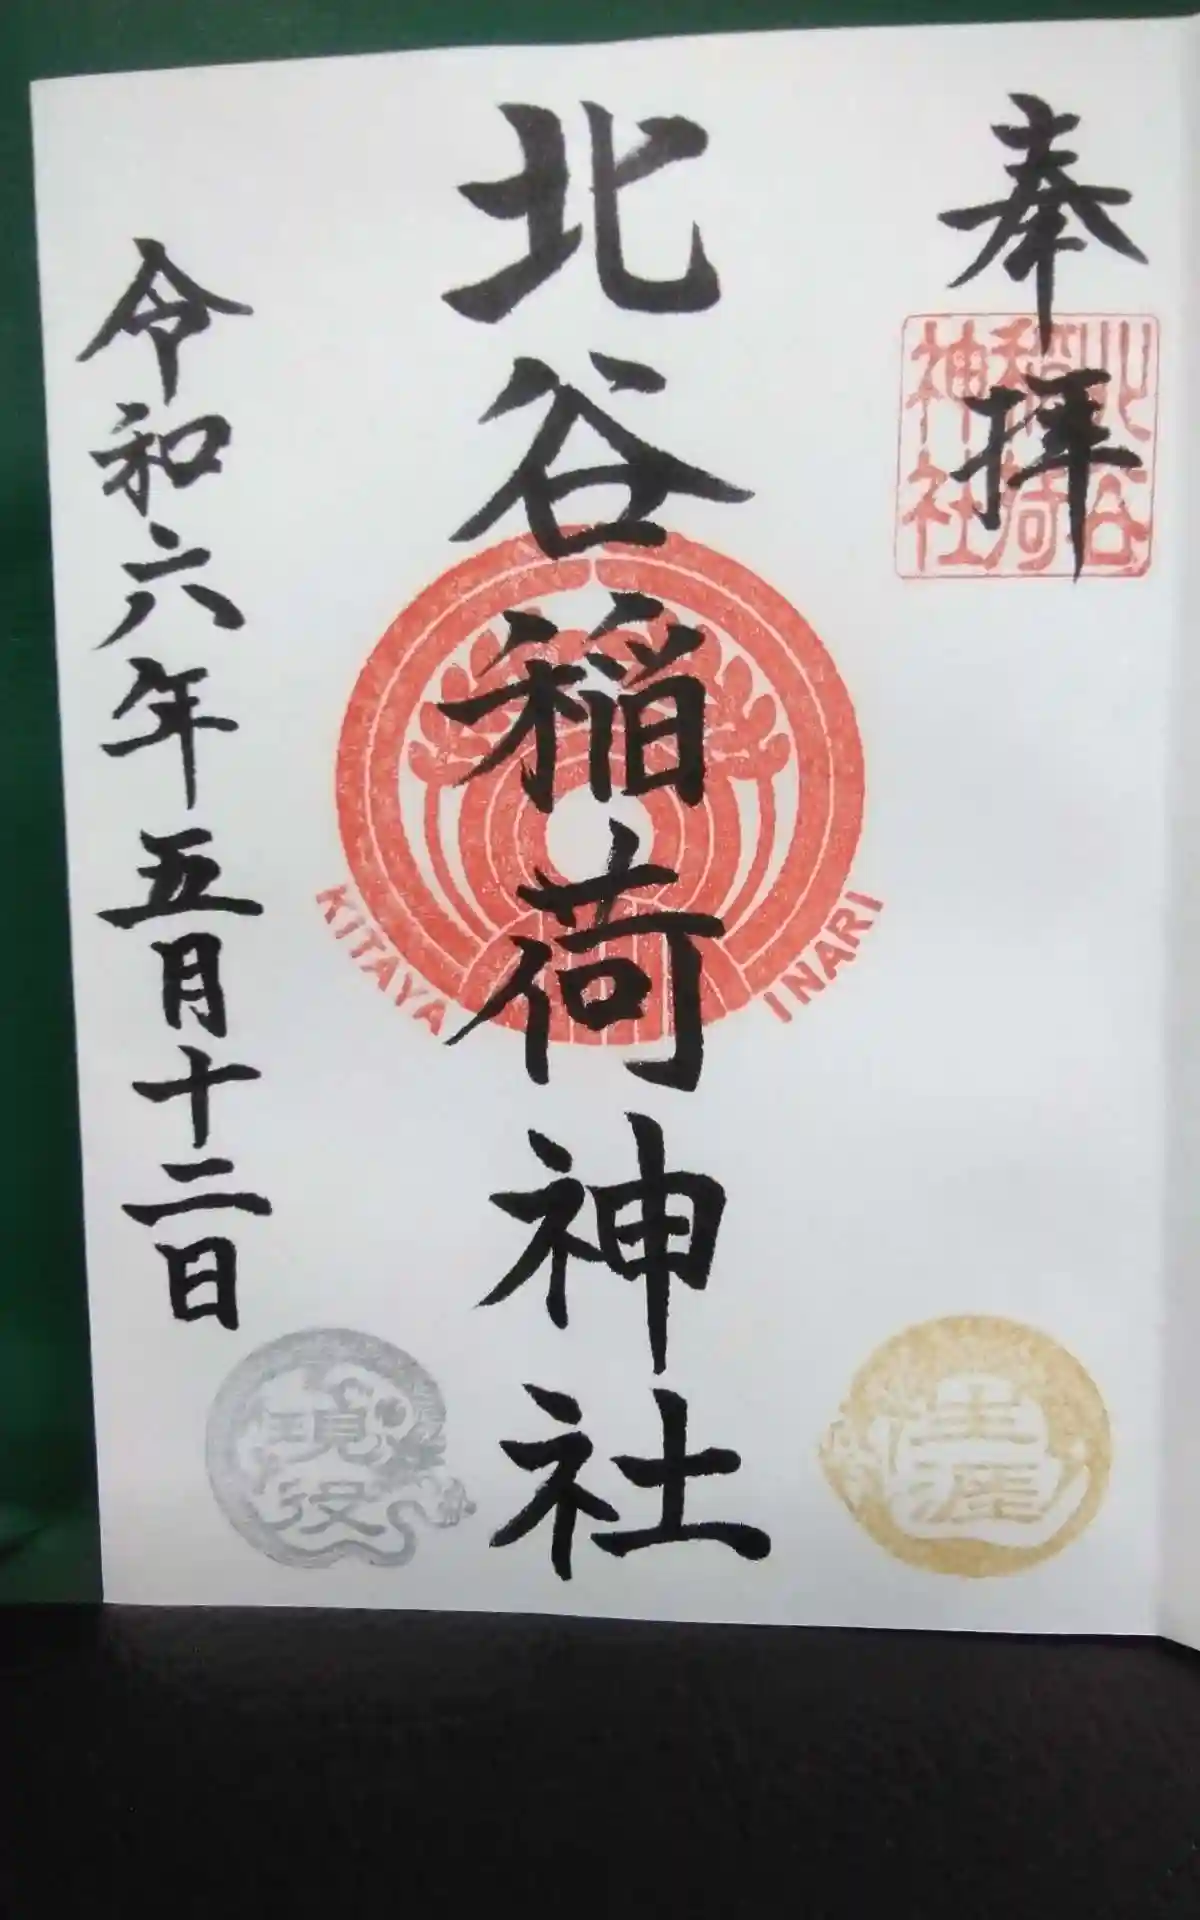 奉拝
北谷稲荷神社
北谷稲荷神社
KITAYA INARI
令和六年五月十二日
生涯
現役